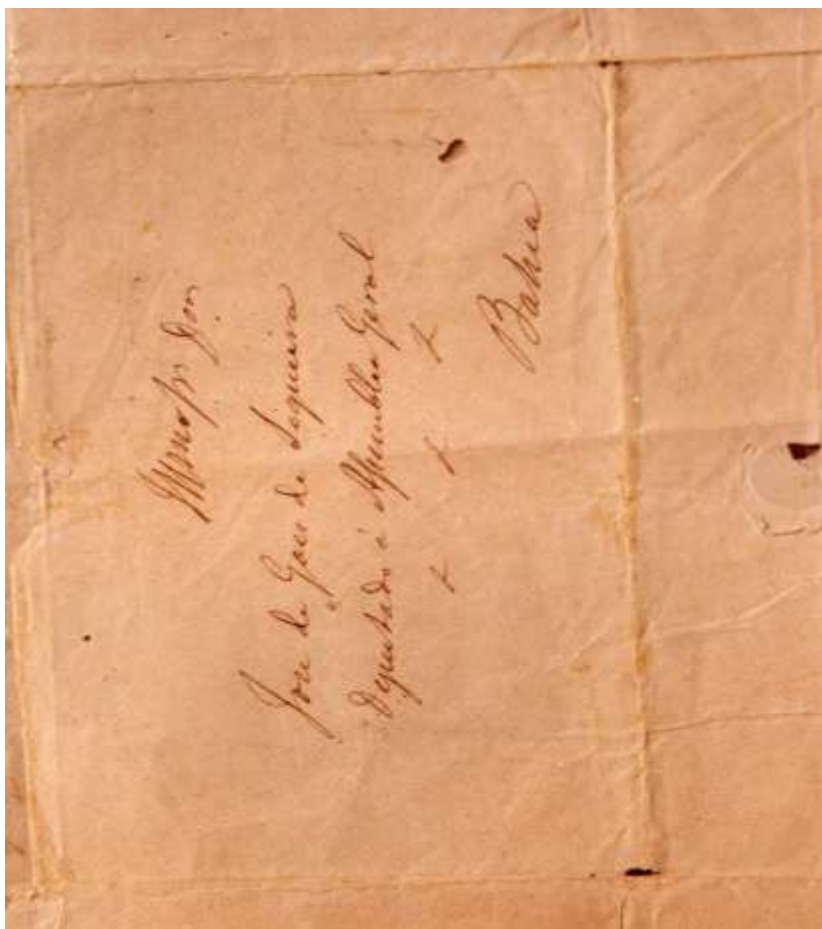 Illmo Sr. Dor.
José de Goes de Siqueira
Deputado á Assemblea Geral
Bahia